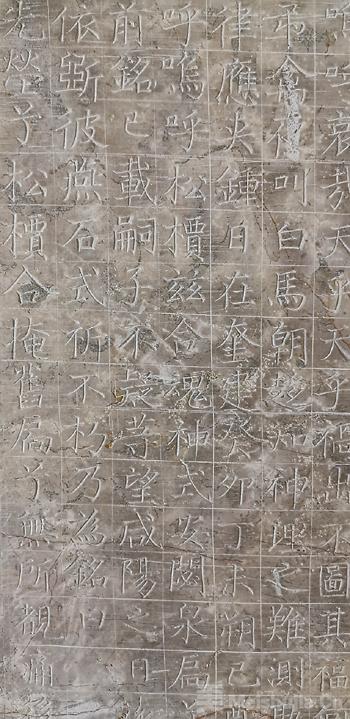 呼哀哉天乎天乎禍出不圖其福
禽夜叫白馬朝趍知神理之難測
律應夾鍾日在奎建癸卯丁未朔己酉
呼嗚呼松檟茲合魂神式安閟泉扃
前銘已載嗣子歲等望咸陽之日
依斲彼燕石式祈不朽乃為銘曰
塋兮松檟合掩舊扃兮無所覩痛